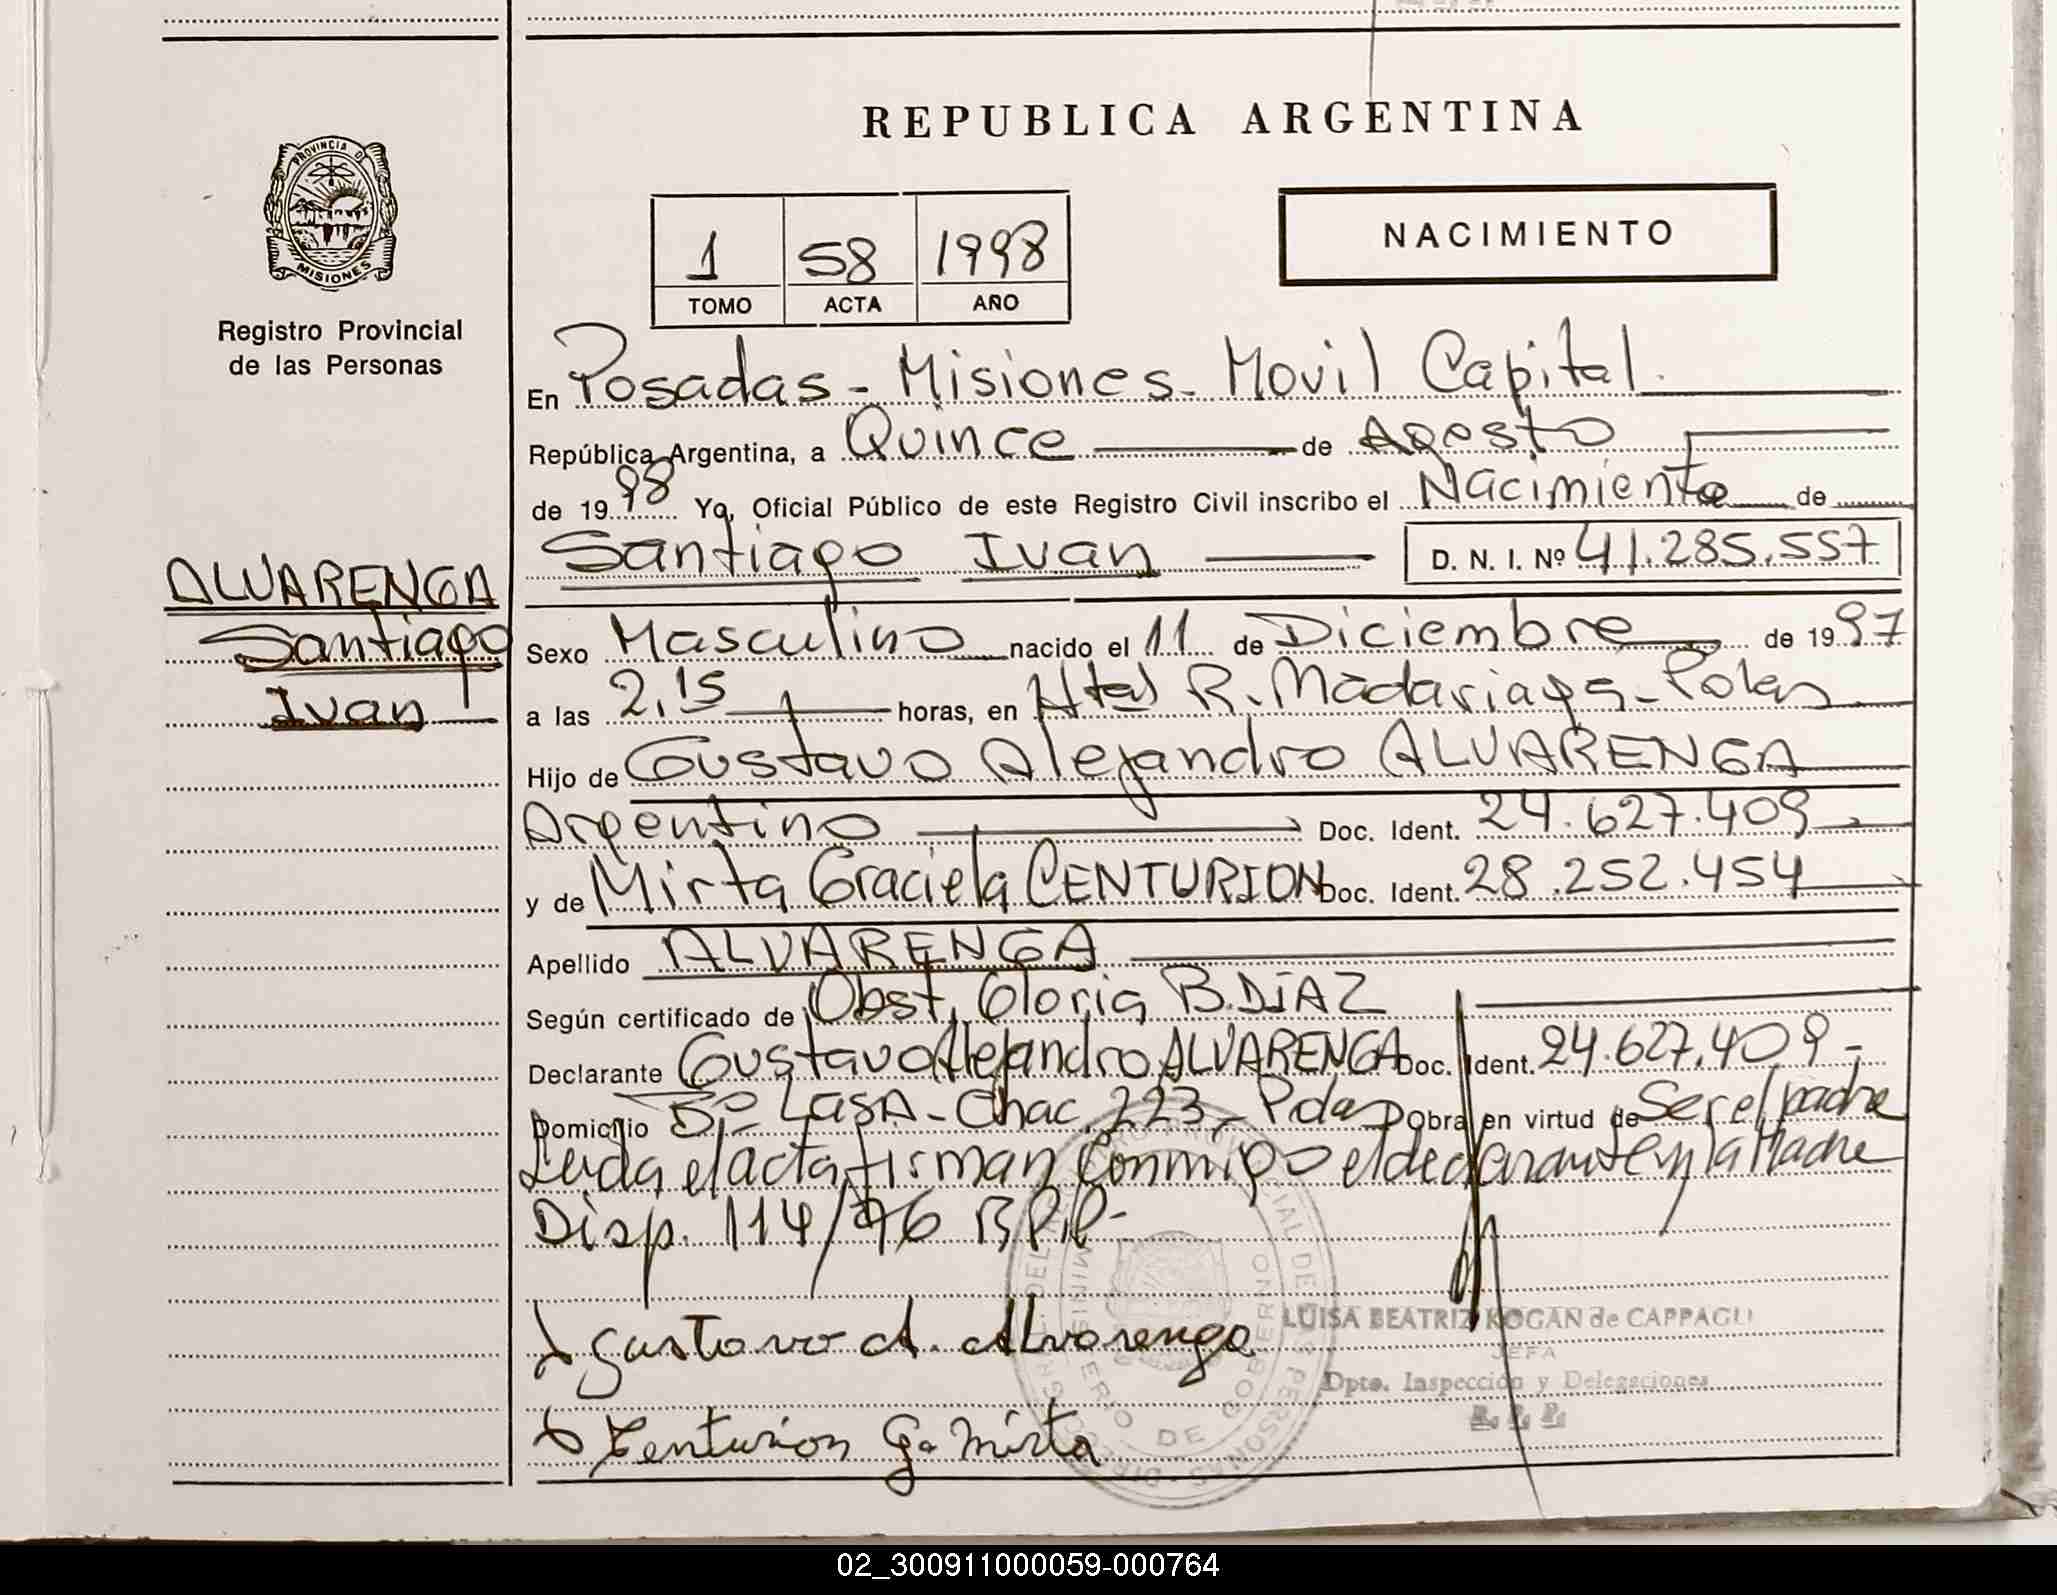 REPUBLICA ARGENTINA
PROVINCIA DE
MISIONES
Registro Provincial
de las Personas
1 58 1998
TOMO ACTA AÑO
NACIMIENTO
En Posadas - Misiones - Movil Capital.
República Argentina, a Quince de Agosto
de 1998 Yo, Oficial Público de este Registro Civil inscribo el Nacimiento de
Santiago Ivan D. N. I. Nº 41.285.557
ALVARENGA
Santiago
Ivan
Sexo Masculino nacido el 11 de Diciembre de 1997
a las 2,15 horas, en Htal R. Madariaga - Pdas
Hijo de Gustavo Alejandro ALVARENGA
Argentino Doc. Ident. 24.627.409
y de Mirta Graciela CENTURION Doc. Ident. 28.252.454
Apellido ALVARENGA
Según certificado de Obst. Gloria B. DíAZ
Declarante Gustavo Alejandro ALVARENGA Doc. Ident. 24.627.409-
Domicilio Bº LASA - Chac. 223 - Pdas Obra en virtud de Ser el padre
Leida el acta firman conmigo el declarante y la Madre
Disp. 114/96 R.P.P-
Gustavo A. Alvarenga
Centurion G. Mirta
LUISA BEATRIZ KOGAN de CAPPAGLI
JEFA
Dpto. Inspección y Delegaciones
R. P. P.
MINISTERIO DE GOBIERNO
02_300911000059-000764